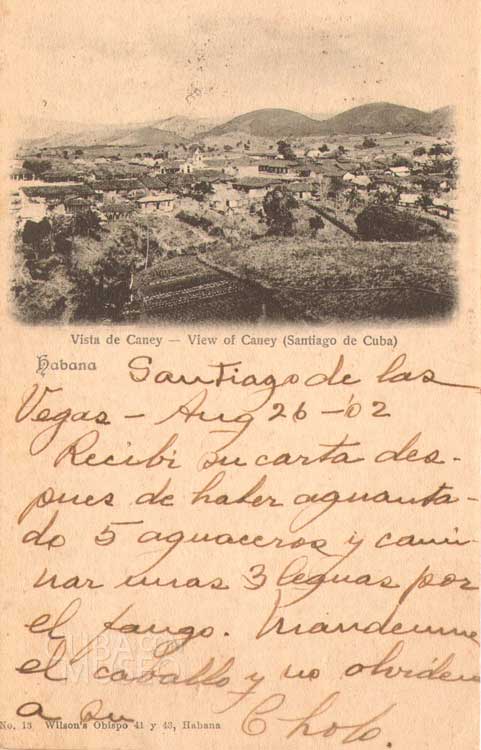 Vista de Caney — View of Caney (Santiago de Cuba)
Habana
Santiago de las
Vegas - Aug 26 - '02
Recibi su carta des-
pues de haber aguanta-
do 5 aguaceros y cami-
nar unas 3 leguas por
el fango. Mandenme
el caballo y no olviden
a su Cholo.
CUBA
MUSEO
No. 13 Wilson's Obispo 41 y 43, Habana